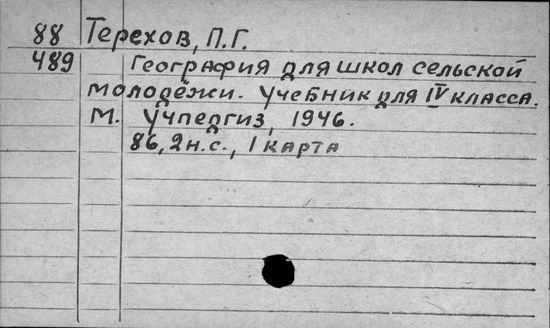 88 Терехов, П.Г.
489 География для школ сельской
молодёжи. Учебник для IV класса.
М. Учпедгиз, 1946.
86, 2 н.с., 1 карта